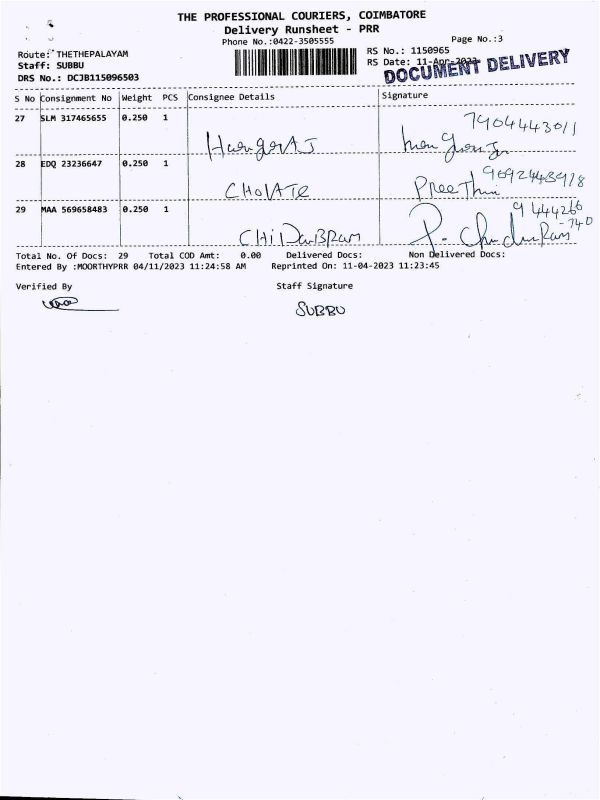 THE PROFESSIONAL COURIERS, COIMBATORE
Delivery Runsheet - PRR
Phone No.:0422-3505555
Page No.:3
Route: THETHEPALAYAM
RS No.: 1150965
Staff: SUBBU
RS Date: 11-Apr-2023
DRS No.: DCJB115096503
DOCUMENT DELIVERY
S No Consignment No Weight PCS Consignee Details Signature
27 SLM 317465655 0.250 1 7904443011
28 EDQ 23236647 0.250 1 CHOLATE PreeThi
29 MAA 569658483 0.250 1 CHiDamBRam
Total No. Of Docs: 29 Total COD Amt: 0.00 Delivered Docs: Non Delivered Docs:
Entered By :MOORTHYPRR 04/11/2023 11:24:58 AM Reprinted On: 11-04-2023 11:23:45
Verified By Staff Signature
SUBBU